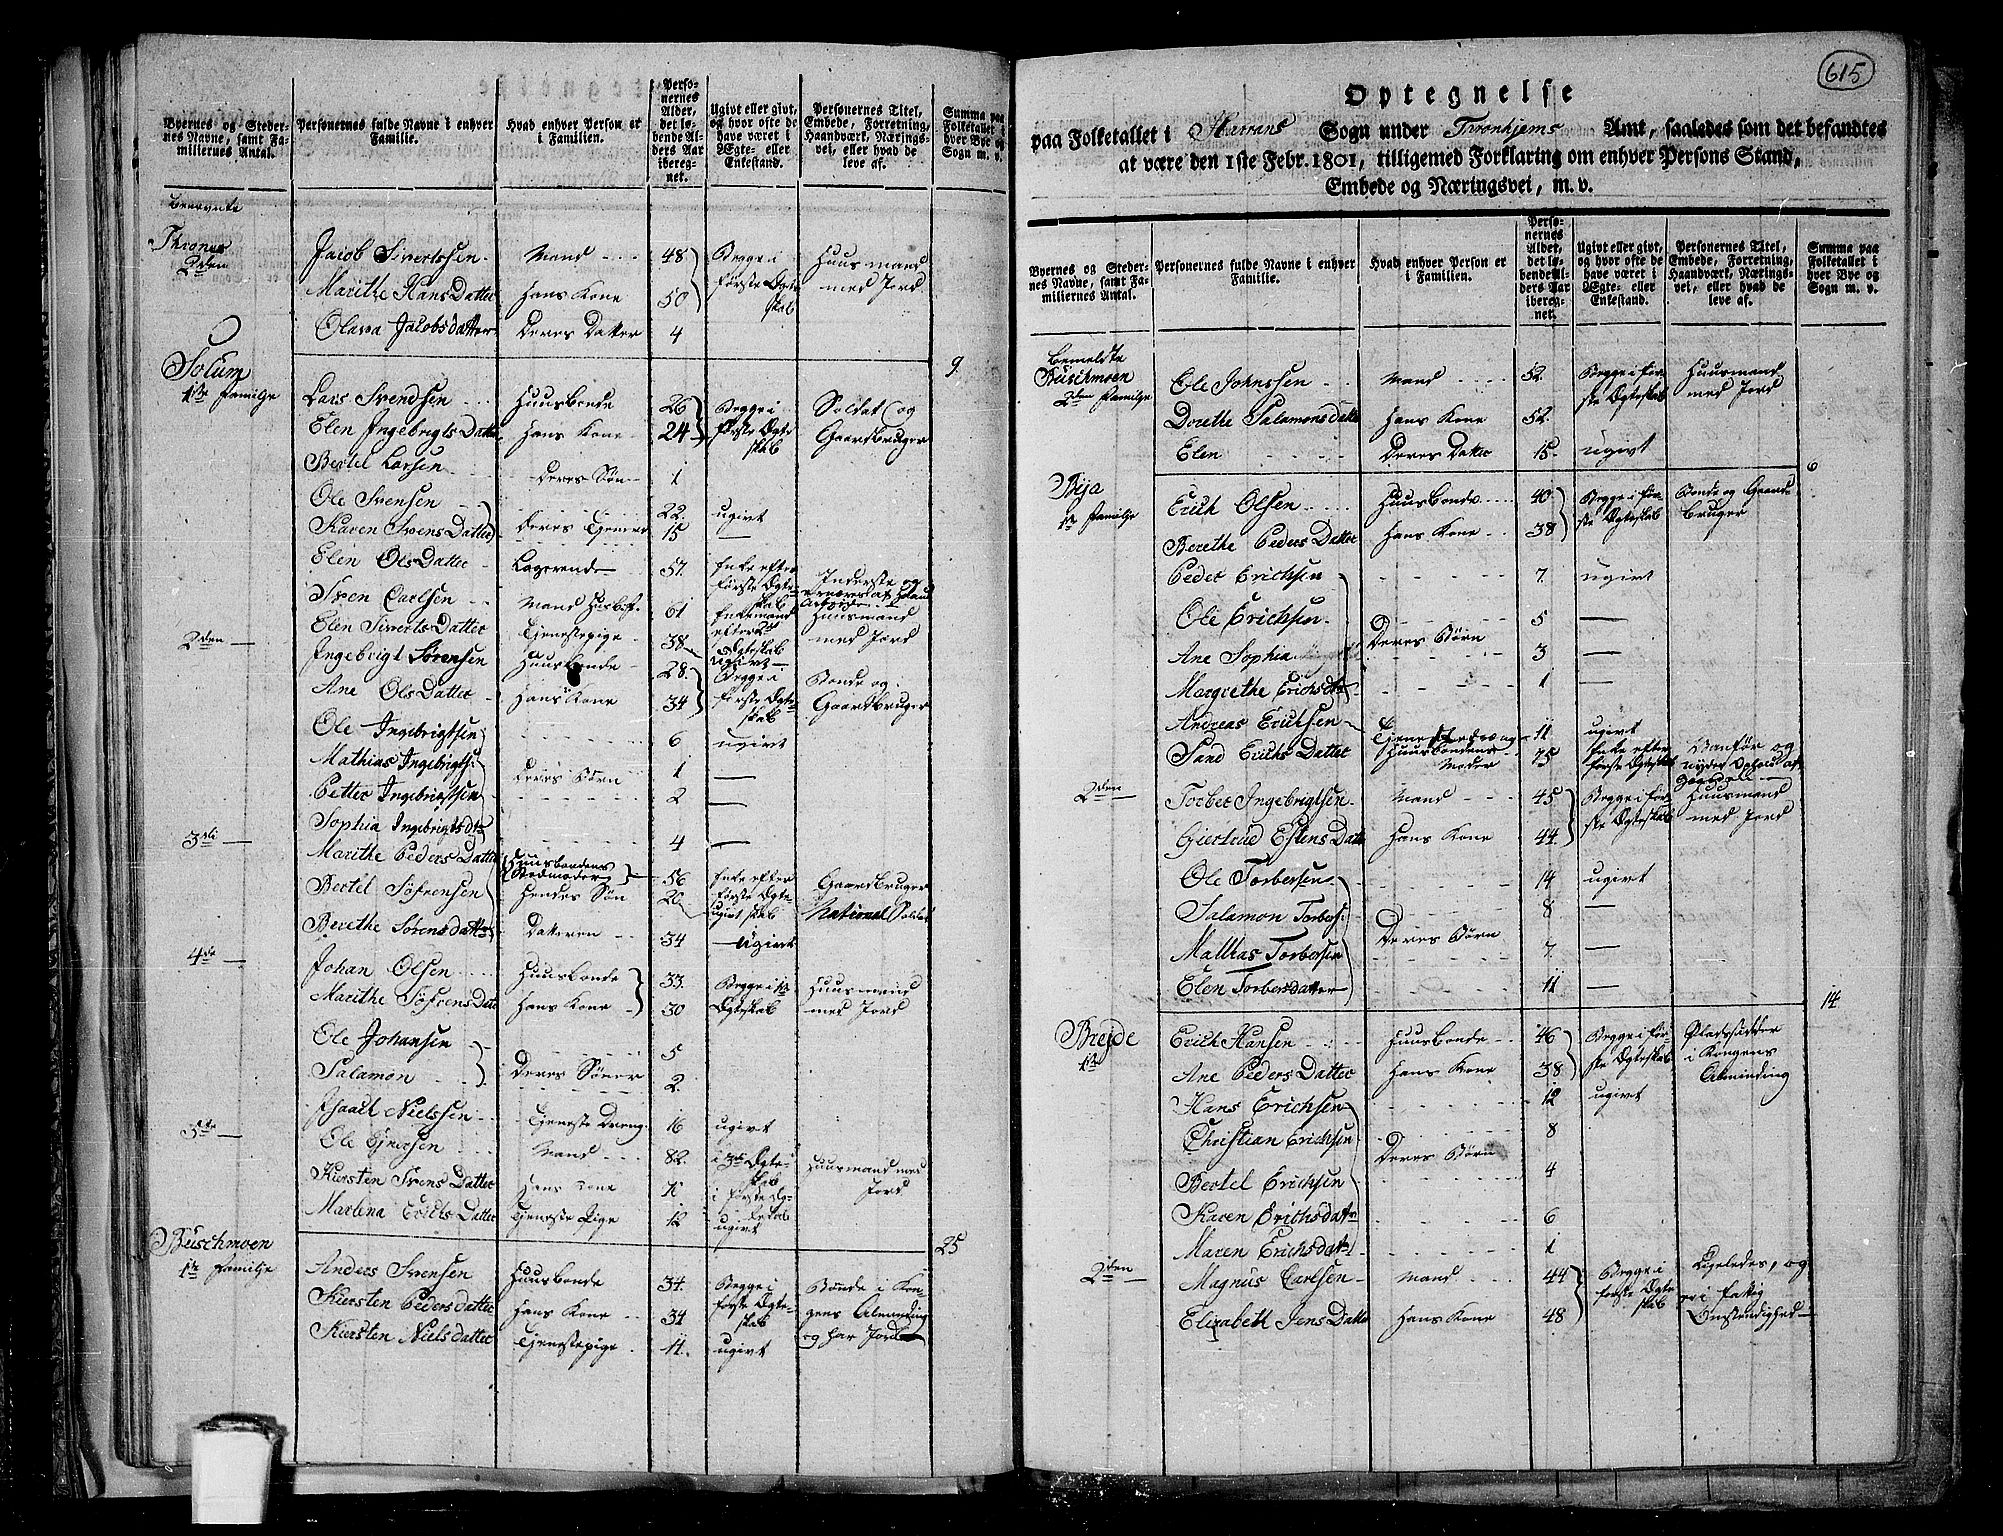 Byernes og Stedernes Navne, samt Familiernes Antal.
Personernes fulde Navne i enhver Familie.
Hvad enhver Person er i Familien.
Personernes Alder, det løbende Alders Aar iberegnet.
Ugivt eller givt, og hvor ofte de have været i Ægte- eller Enkestand.
Personernes Titel, Embede, Forretning, Haandværk, Næringsvei, eller hvad de leve af.
Summa paa Folketallet i hver Bye og Sogn m. v.
2den Jacob Sivertssen Mand 48 Begge i Huusmand
Marithe Hans Datter Hans Kone 50 første Ægteskab med Jord
Olava Jacobsdatter Deres Datter 4
9.
Solum
1ste Familje Lars Svendsen Huusbonde 26 Begge i Soldat og
Elen Ingebrigts Datter Hans Kone 24 første Ægteskab Gaardbruger
Bertel Larsen Deres Søn 1
Ole Svensen 22. ugivt
Karen Svens Datter Deres Tjenere 15 —
Elen Ols Datter Logerende 57. Enke efter første Ægteskab Inderste og
Sven Carlsen Mand 61 Enkemand Huusmand
Elen Siverts Datter Tjenestepige 38 med Jord
2den Ingebrigt Sørensen Huusbonde 28. Begge i Bonde og
Ane Ols Datter Hans Kone 34 første Ægteskab Gaardbruger
Ole Ingebrigtsen 6 ugivt
Mathias Ingebrigts: 1 —
Petter Ingebrigtsen Deres Børn 2 —
Sophia Ingebrigtsdt 4 —
3die Marithe Peders Datter Huusbondens Stedmoder 56 Enke efter første Ægteskab Gaardbruger
Bertel Söfrensen Hendes Søn 20 ugivt National Soldat
Berethe Sörensdatter Datteren 34 Ugivt
4de Johan Olsen Huusbonde 33. Begge i 1ste Huusmand
Marithe Söfrens Datter Hans Kone 30 Ægteskab med Jord
Ole Johansen 5
Salamon Deres Sønner 2.
Isaach Nielssen Tjeneste Dreng 16 ugivt
5te Ole Mand 82. i 3die Ægteskab Huusmand med
Kiersten Svens Datter Hans Kone i første Ægteskab Jord
Marlena Erichs Datter Tjeneste Pige 12 ugivt
25
Büschmoen
1ste Familje Anders Svensen Huusbonde 34. Begge i Bønde i Kongens
Kiersten Peders datter Hans Kone 34 første Ægteskab Alminding
Kiersten Niels datter Tjenestepige 11. ugivt og har Jord
615
Optegnelse
paa Folketallet i Harrans Sogn under Tronhjems Amt, saaledes som det befandtes
at være den 1ste Febr. 1801, tilligemed Forklaring om enhver Persons Stand,
Embede og Næringsvei, m. v.
Byernes og Stedernes Navne, samt Familiernes Antal.
Personernes fulde Navne i enhver Familie.
Hvad enhver Person er i Familien.
Personernes Alder, det løbende Alders Aar iberegnet.
Ugivt eller givt, og hvor ofte de have været i Ægte- eller Enkestand.
Personernes Titel, Embede, Forretning, Haandværk, Næringsvei, eller hvad de leve af.
Summa paa Folketallet i hver Bye og Sogn m. v.
bemeldte
Büschmoen
2den Familje Ole Johnssen Mand 52. Begge i første Ægteskab Huusmand med Jord
Dorethe Salamons datter Hans Kone 52.
Elen Deres Datter 15. ugivt
6
Bija
1ste Familje Erich Olsen Huusbonde 40 Begge i første Ægteskab Bonde og Gaardbruger
Berethe Peders Datter Hans Kone 38
Peder Erichsen 7. ugivt
Ole Erichsen 5 —
Ane Sophia Deres Børn 3 —
Margrethe Erichsdtr 1 —
Andreas Erichsen Tjeneste Dreng 11 ugivt
Sand Erichs Datter Huusbondens Moder 75 Enke efter første Ægteskab Vanför og nyder Ophold af Gaarden
2den Torber Ingebrigtsen Mand 45 Begge i første Ægteskab Huusmand med Jord
Gjertrud Estens Datter Hans Kone 44
Ole Torbersen 14 ugivt
Salamon Torbers: 8 —
Mathias Torbersen Deres Børn 7 —
Elen Torbersdatter 11 —
14
Brejde
1ste Erich Hansen Huusbonde 46 Begge i første Ægteskab Pladssidder i Kongens Alminding
Ane Peders Datter Hans Kone 38
Hans Erichsen 12 ugivt
Christian Erichsen 8
Bertel Erichsen Deres Børn 4
Karen Erichsdatr 6
Maren Erichsdatr 1
2den Magnus Carlsen Mand 44 Begge i første Ægteskab Ligeledes, og
Elizabeth Jens Datter Hans Kone 48 er i fattig Omstændighed